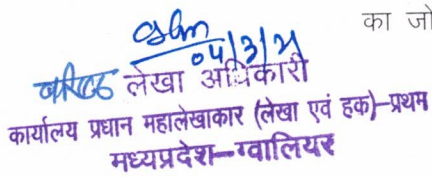 का जो
04/3/21
वरिष्ठ लेखा अधिकारी
कार्यालय प्रधान महालेखाकार (लेखा एवं हक)–प्रथम
मध्यप्रदेश–ग्वालियर